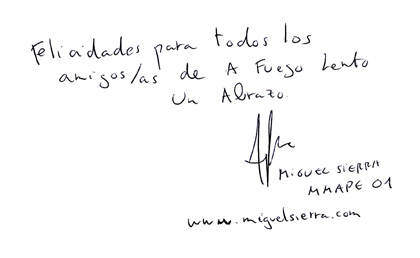 Felicidades para todos los
amigos/as de A Fuego Lento
Un Abrazo.
MIGUEL SIERRA
MMAPE 01
www.miguelsierra.com